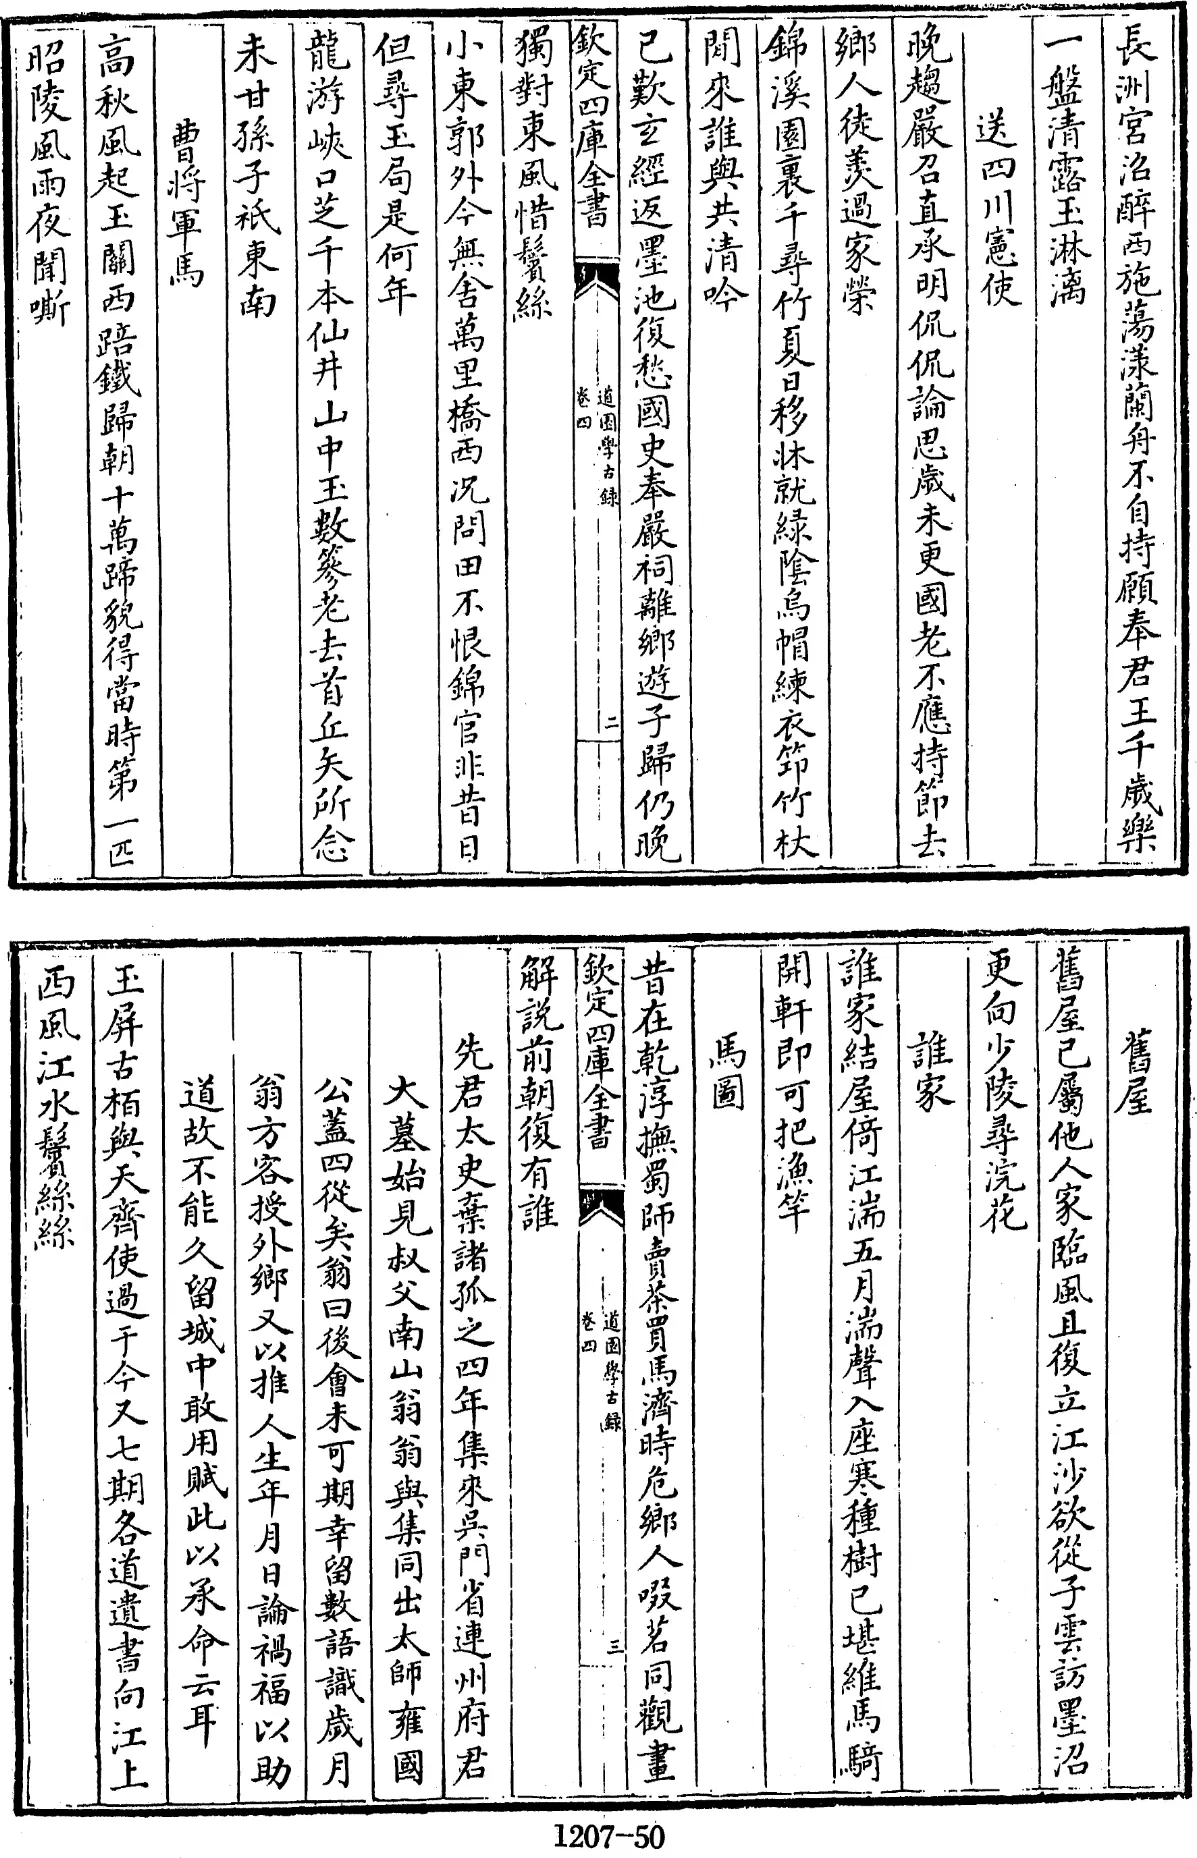 長洲宮沼醉西施蕩漾蘭舟不自持願奉君王千歲樂
一盤清露玉淋漓
送四川憲使
晚趨嚴召直承明侃侃論思歲未更國老不應持節去
鄉人徒羨過家榮
錦溪園裏千尋竹夏日移牀就綠陰烏帽練衣筇竹杖
閒來誰與共清吟
已歎玄經返墨池復愁國史奉嚴祠離鄉遊子歸仍晚
欽定四庫全書
道園學古錄
卷四
二
獨對東風惜鬢絲
小東郭外今無舍萬里橋西况問田不恨錦官非昔日
但尋玉局是何年
龍游峽口芝千本仙井山中玉數篸老去首丘矢所念
未甘孫子祇東南
曹將軍馬
高秋風起玉關西踣鐵歸朝十萬蹄貌得當時第一匹
昭陵風雨夜聞嘶
舊屋
舊屋已屬他人家臨風且復立江沙欲從子雲訪墨沼
更向少陵尋浣花
誰家
誰家結屋倚江湍五月湍聲入座寒種樹已堪維馬騎
開軒即可把漁竿
馬圖
昔在乾淳撫蜀師賣茶買馬濟時危鄉人啜茗同觀畫
欽定四庫全書
道園學古錄
卷四
三
解說前朝復有誰
先君太史棄諸孤之四年集來吳門省連州府君
大墓始見叔父南山翁翁與集同出太師雍國
公蓋四從矣翁曰後會未可期幸留數語識歲月
翁方客授外鄉又以推人生年月日論禍福以助
道故不能久留城中敢用賦此以承命云耳
玉屏古栢與天齊使過于今又七期各道遺書向江上
西風江水鬢絲絲
1207-50